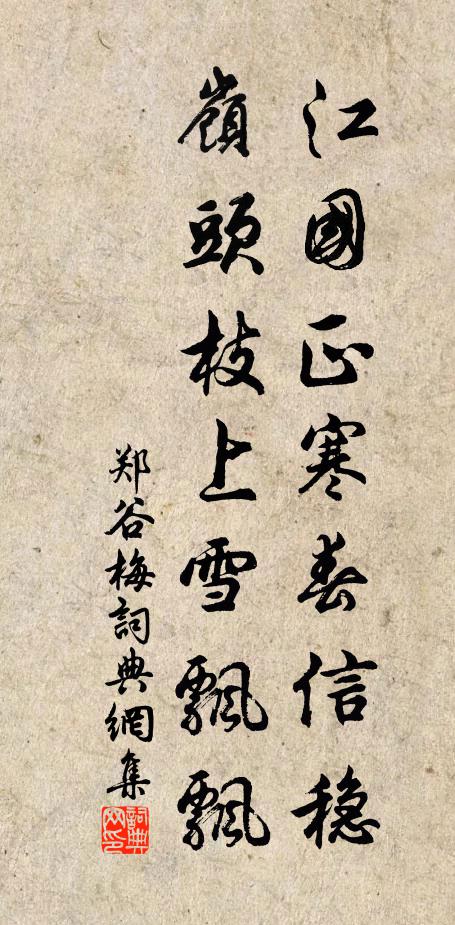 江國正寒春信穩
嶺頭枝上雪飄飄
郑谷梅詞典網集
詞典网印